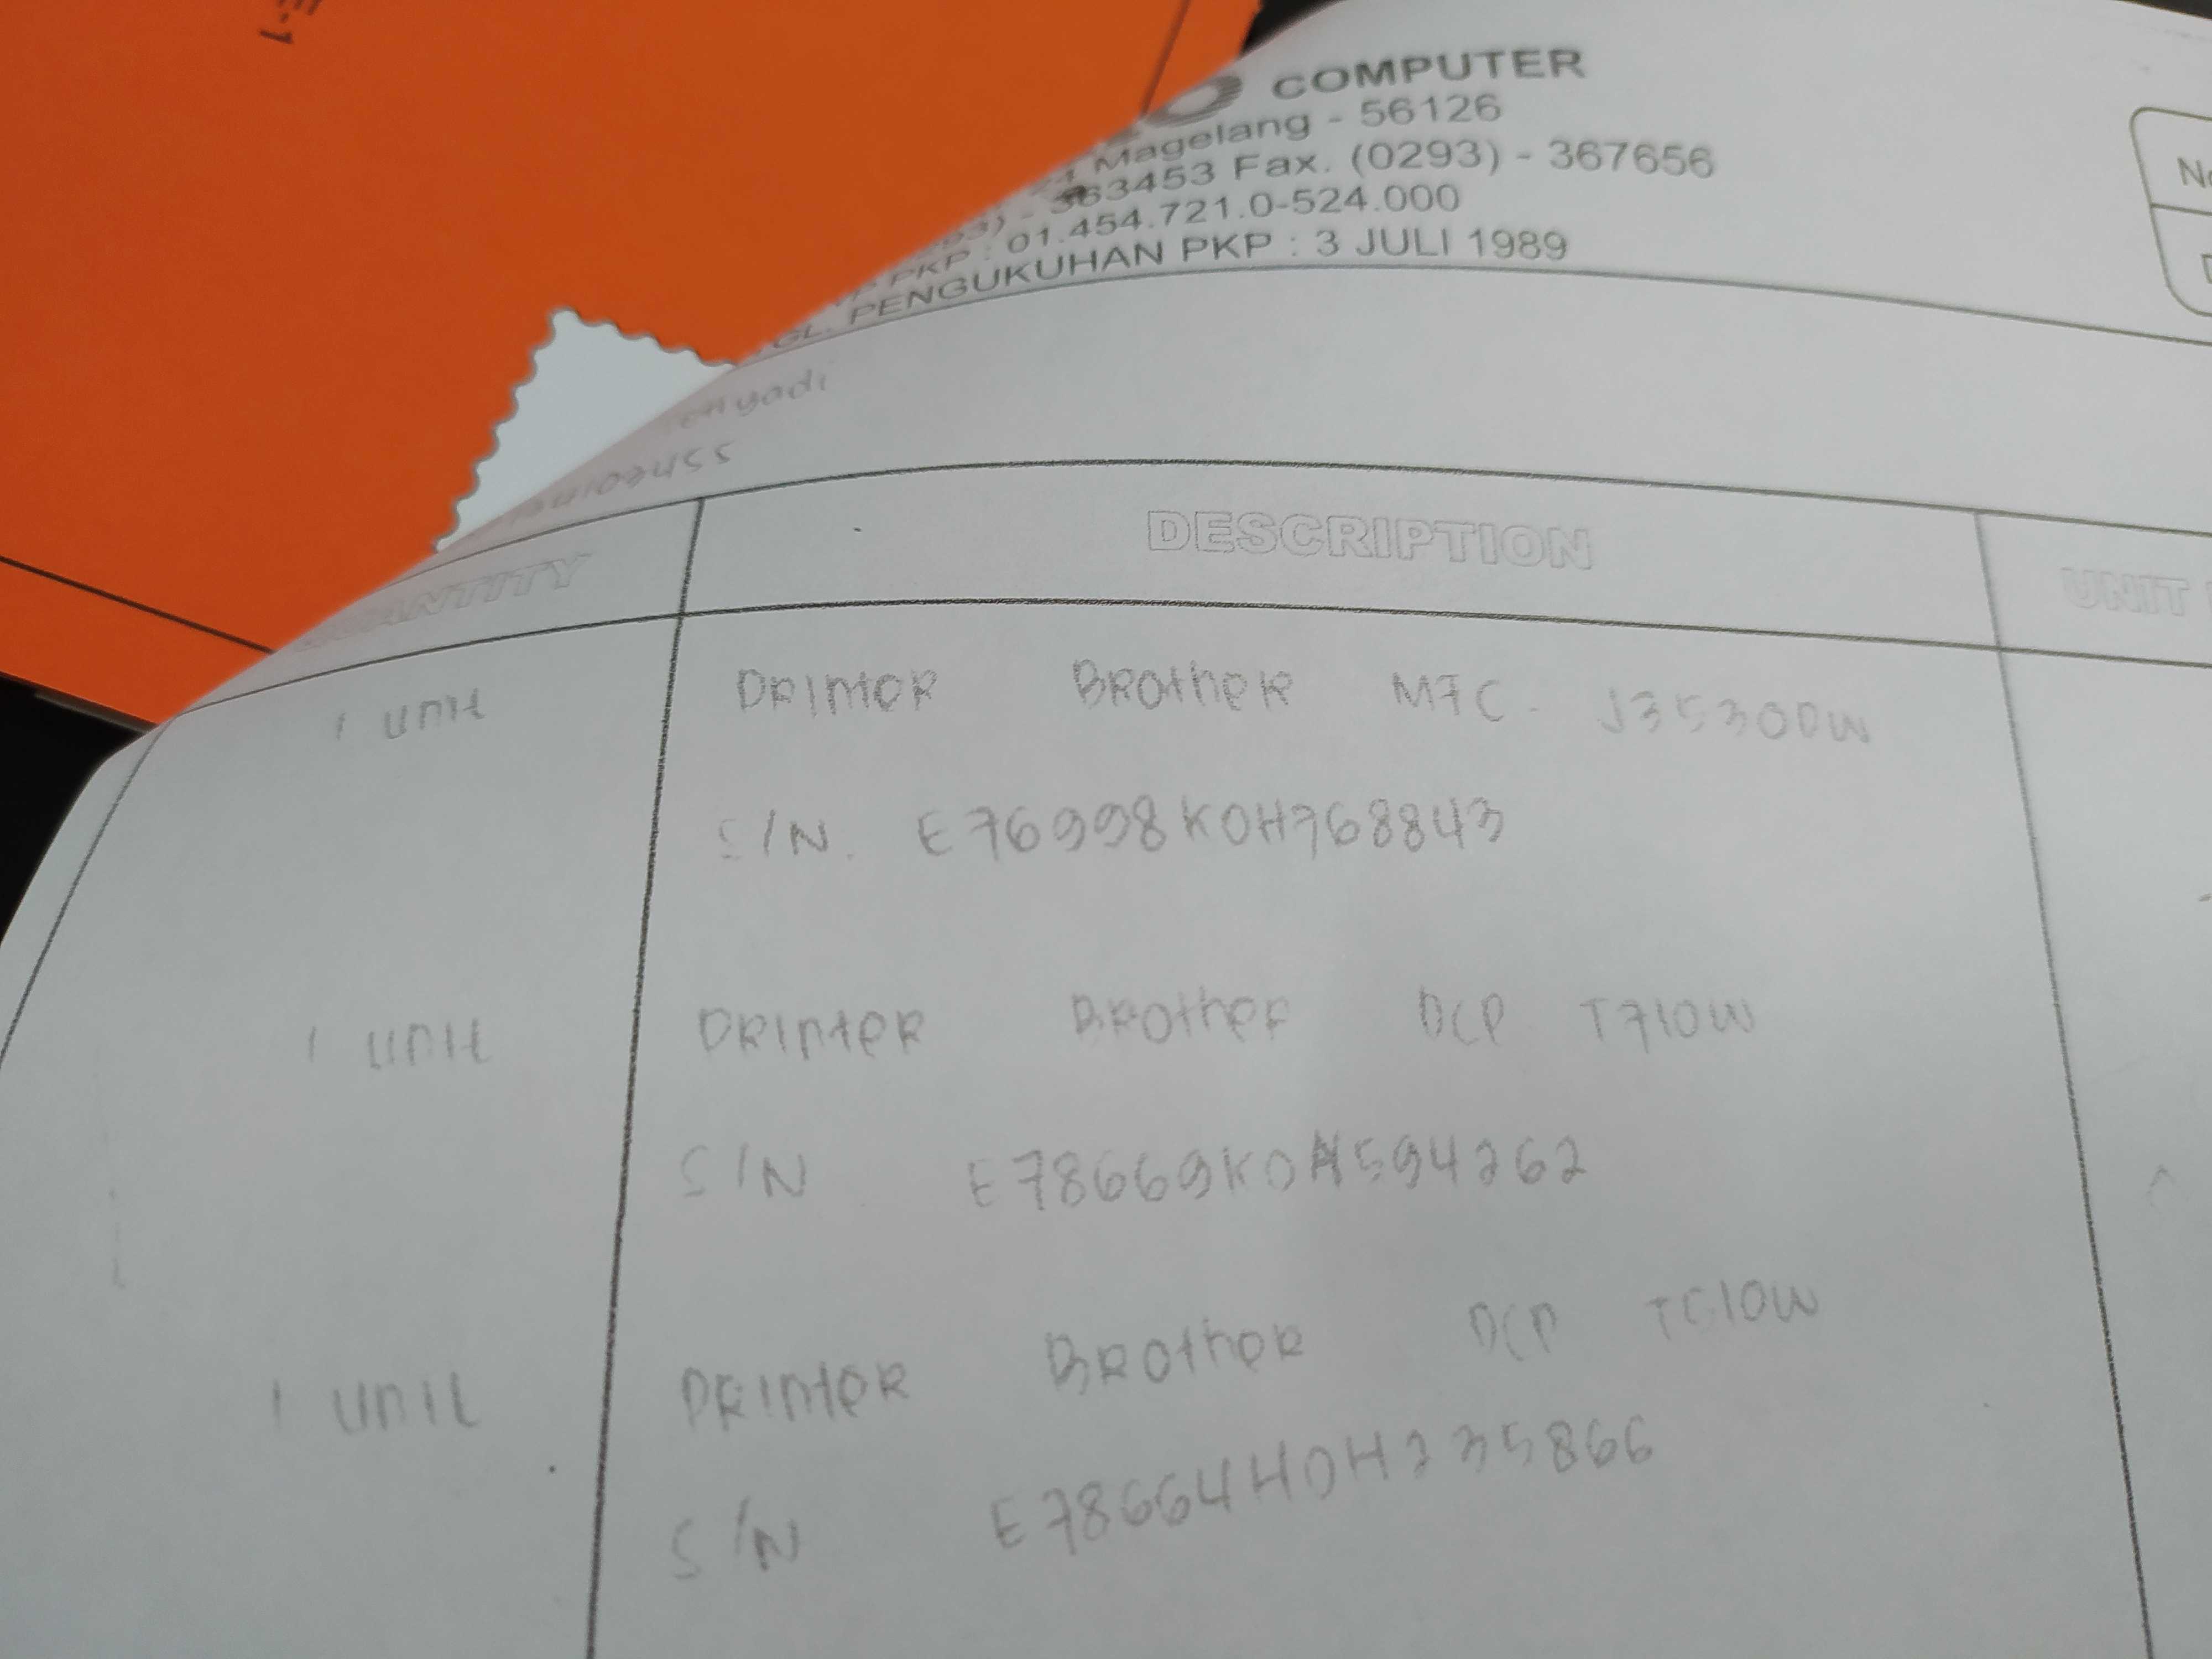 COMPUTER
Magelang - 56126
363453 Fax. (0293) - 367656
PKP : 01.454.721.0-524.000
GL. PENGUKUHAN PKP : 3 JULI 1989
DESCRIPTION
UNIT
1 unit Printer Brother MFC - J3530DW
S/N. E76998K0H768843
1 unit Printer Brother DCP T710W
S/N E78669K0H594262
1 unit Printer Brother DCP T510W
S/N E78664H0H235866